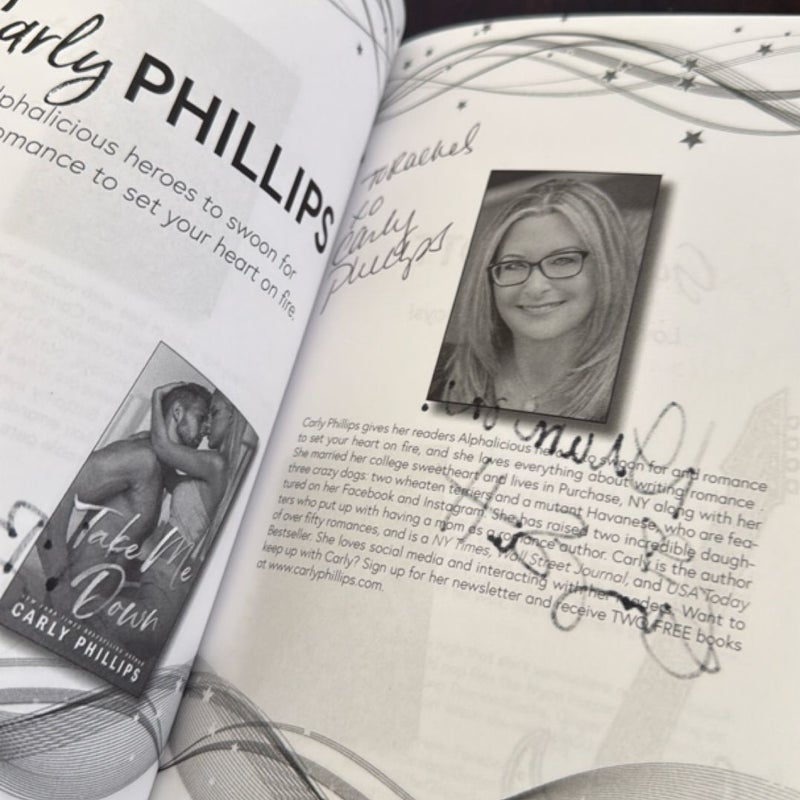 Carly PHILLIPS
lphalicious heroes to swoon for
omance to set your heart on fire.
Take Me
Down
NEW YORK TIMES BESTSELLING AUTHOR
CARLY PHILLIPS
To Rachel
xo
Carly
Phillips
Carly Phillips gives her readers Alphalicious heroes to swoon for and romance
to set your heart on fire, and she loves everything about writing romance
She married her college sweetheart and lives in Purchase, NY along with her
three crazy dogs: two wheaten terriers and a mutant Havanese, who are fea-
tured on her Facebook and Instagram. She has raised two incredible daugh-
ters who put up with having a mom as a romance author. Carly is the author
of over fifty romances, and is a NY Times, Wall Street Journal, and USA Today
Bestseller. She loves social media and interacting with her readers. Want to
keep up with Carly? Sign up for her newsletter and receive TWO FREE books
at www.carlyphillips.com.